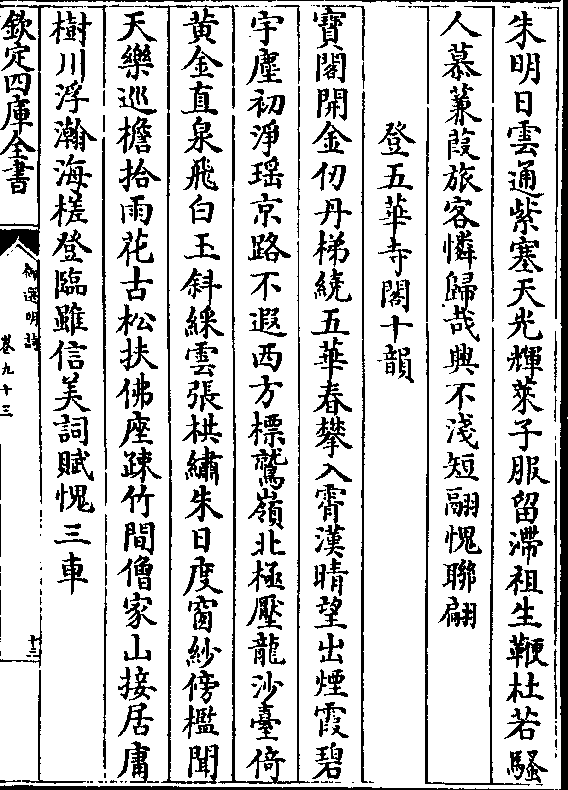 朱明日雲通紫塞天光輝萊子服留滯祖生鞭杜若騷
人慕蒹葭旅客憐歸哉興不淺短翮愧聯翩
登五華寺閣十韻
寶閣開金仞丹梯繞五華春攀入霄漢晴望出煙霞碧
宇塵初淨瑶京路不遐西方標鷲嶺北極壓龍沙臺倚
黄金直泉飛白玉斜綵雲張栱繡朱日度窗紗傍檻聞
天樂巡檐拾雨花古松扶佛座疎竹間僧家山接居庸
樹川浮瀚海槎登臨雖信美詞賦愧三車
欽定四庫全書
御選明詩
卷九十三
十三